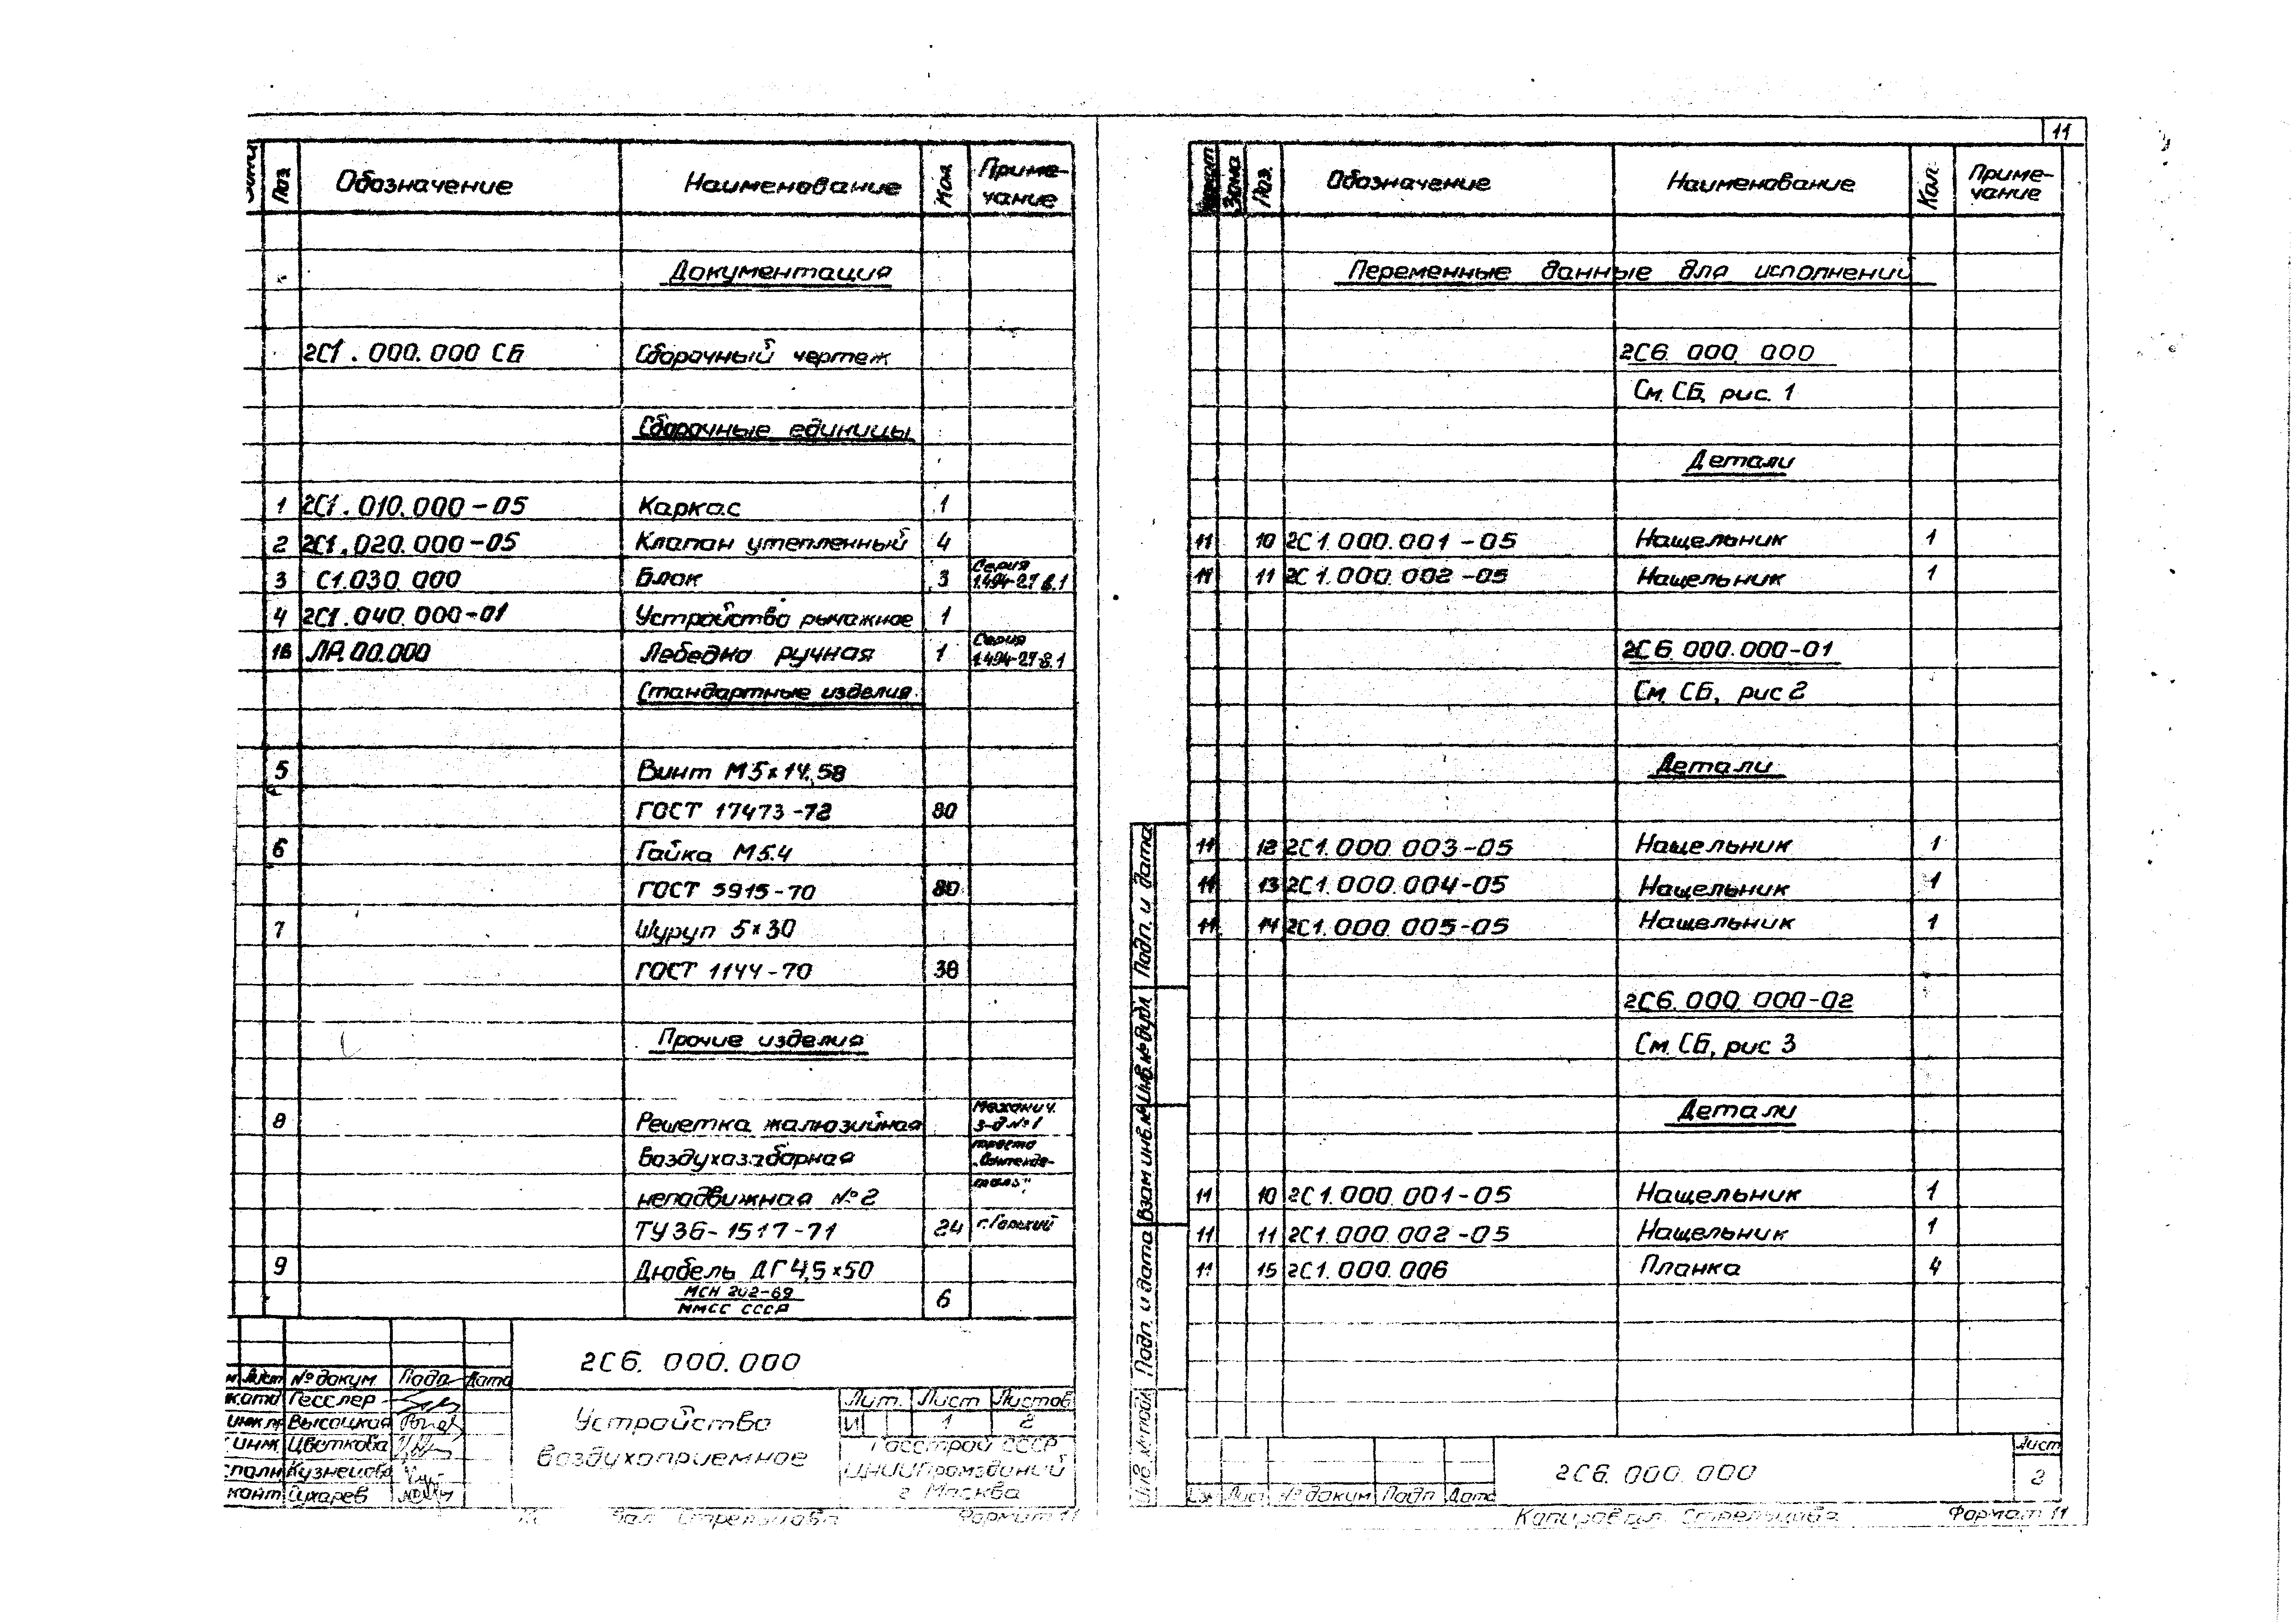 Поз. Обозначение Наименование Кол. Приме-
чание
Документация
2С1.000.000 СБ Сборочный чертеж
Сборочные единицы
1 2С1.010.000-05 Каркас 1
2 2С1.020.000-05 Клапан утепленный 4
3 С1.030.000 Блок 3 Серия
1.494-27 в.1
4 2С1.040.000-01 Устройство рычажное 1
16 ЛР.00.000 Лебедка ручная 1 Серия
1.494-27 в.1
Стандартные изделия
5 Винт М5х14.58
ГОСТ 17473-72 80
6 Гайка М5.4
ГОСТ 5915-70 80
7 Шуруп 5х30
ГОСТ 1144-70 38
Прочие изделия
8 Решетка жалюзийная Механич.
з-д №1
воздухозаборная треста
„Сантехде-
неподвижная №2 таль",
ТУ 36-1517-71 24 г. Горький
9 Дюбель ДГ 4,5х50
МСН 202-69
ММСС СССР 6
2С6.000.000
Лист № докум. Подп. Дата
Гесслер
Высоцкая
Цветкова
Кузнецова
контр Сухарев
Устройство
воздухоприемное
Лит. Лист Листов
И 1 2
Госстрой СССР
ЦНИИПромзданий
г. Москва
Формат 11
11
Формат Зона Поз. Обозначение Наименование Кол. Приме-
чание
Переменные данные для исполнений
2С6.000.000
См. СБ, рис. 1
Детали
11 10 2С1.000.001-05 Нащельник 1
11 11 2С1.000.002-05 Нащельник 1
2С6.000.000-01
См. СБ, рис 2
Детали
11 12 2С1.000.003-05 Нащельник 1
11 13 2С1.000.004-05 Нащельник 1
11 14 2С1.000.005-05 Нащельник 1
2С6.000.000-02
См. СБ, рис 3
Детали
11 10 2С1.000.001-05 Нащельник 1
11 11 2С1.000.002-05 Нащельник 1
11 15 2С1.000.006 Планка 4
Подп. и дата
Инв. № дубл.
Взам инв. №
Подп. и дата
Инв. № подл.
Изм Лист № докум Подп Дата
2С6.000.000
Лист
2
Копировал Стрельцова
Формат 11